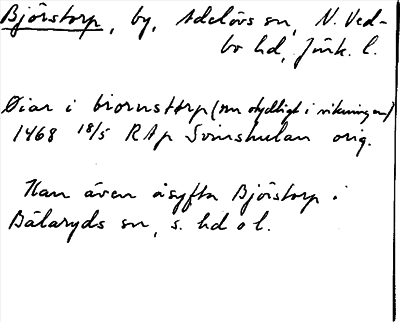 Björstorp, by, Adelövs sn, N. Ved-
bo hd, Jönk. l.
Öiar i biornstorp (nu otydligt i vikningen)
1468 18/5 RAp Svinhulan orig.
Kan även åsyfta Björstorp i
Bälaryds sn, s. hd o l.